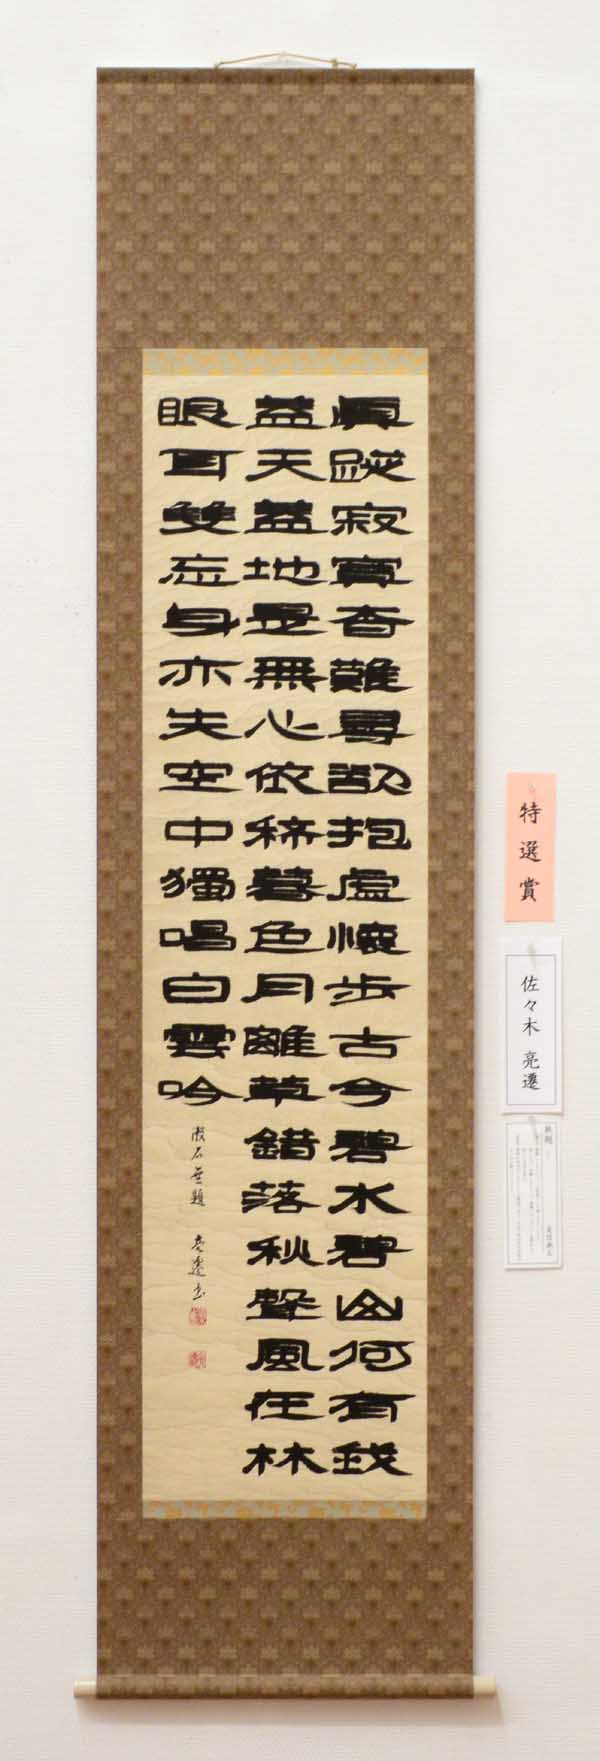 眞蹤寂寞杳難尋欲抱虛懷步古今碧水碧山何有我
蓋天蓋地是無心依稀暮色月離草錯落秋聲風在林
眼耳雙忘身亦失空中獨唱白雲吟
漱石無題 亮遷書
特選賞
佐々木 亮遷
無題
夏目漱石